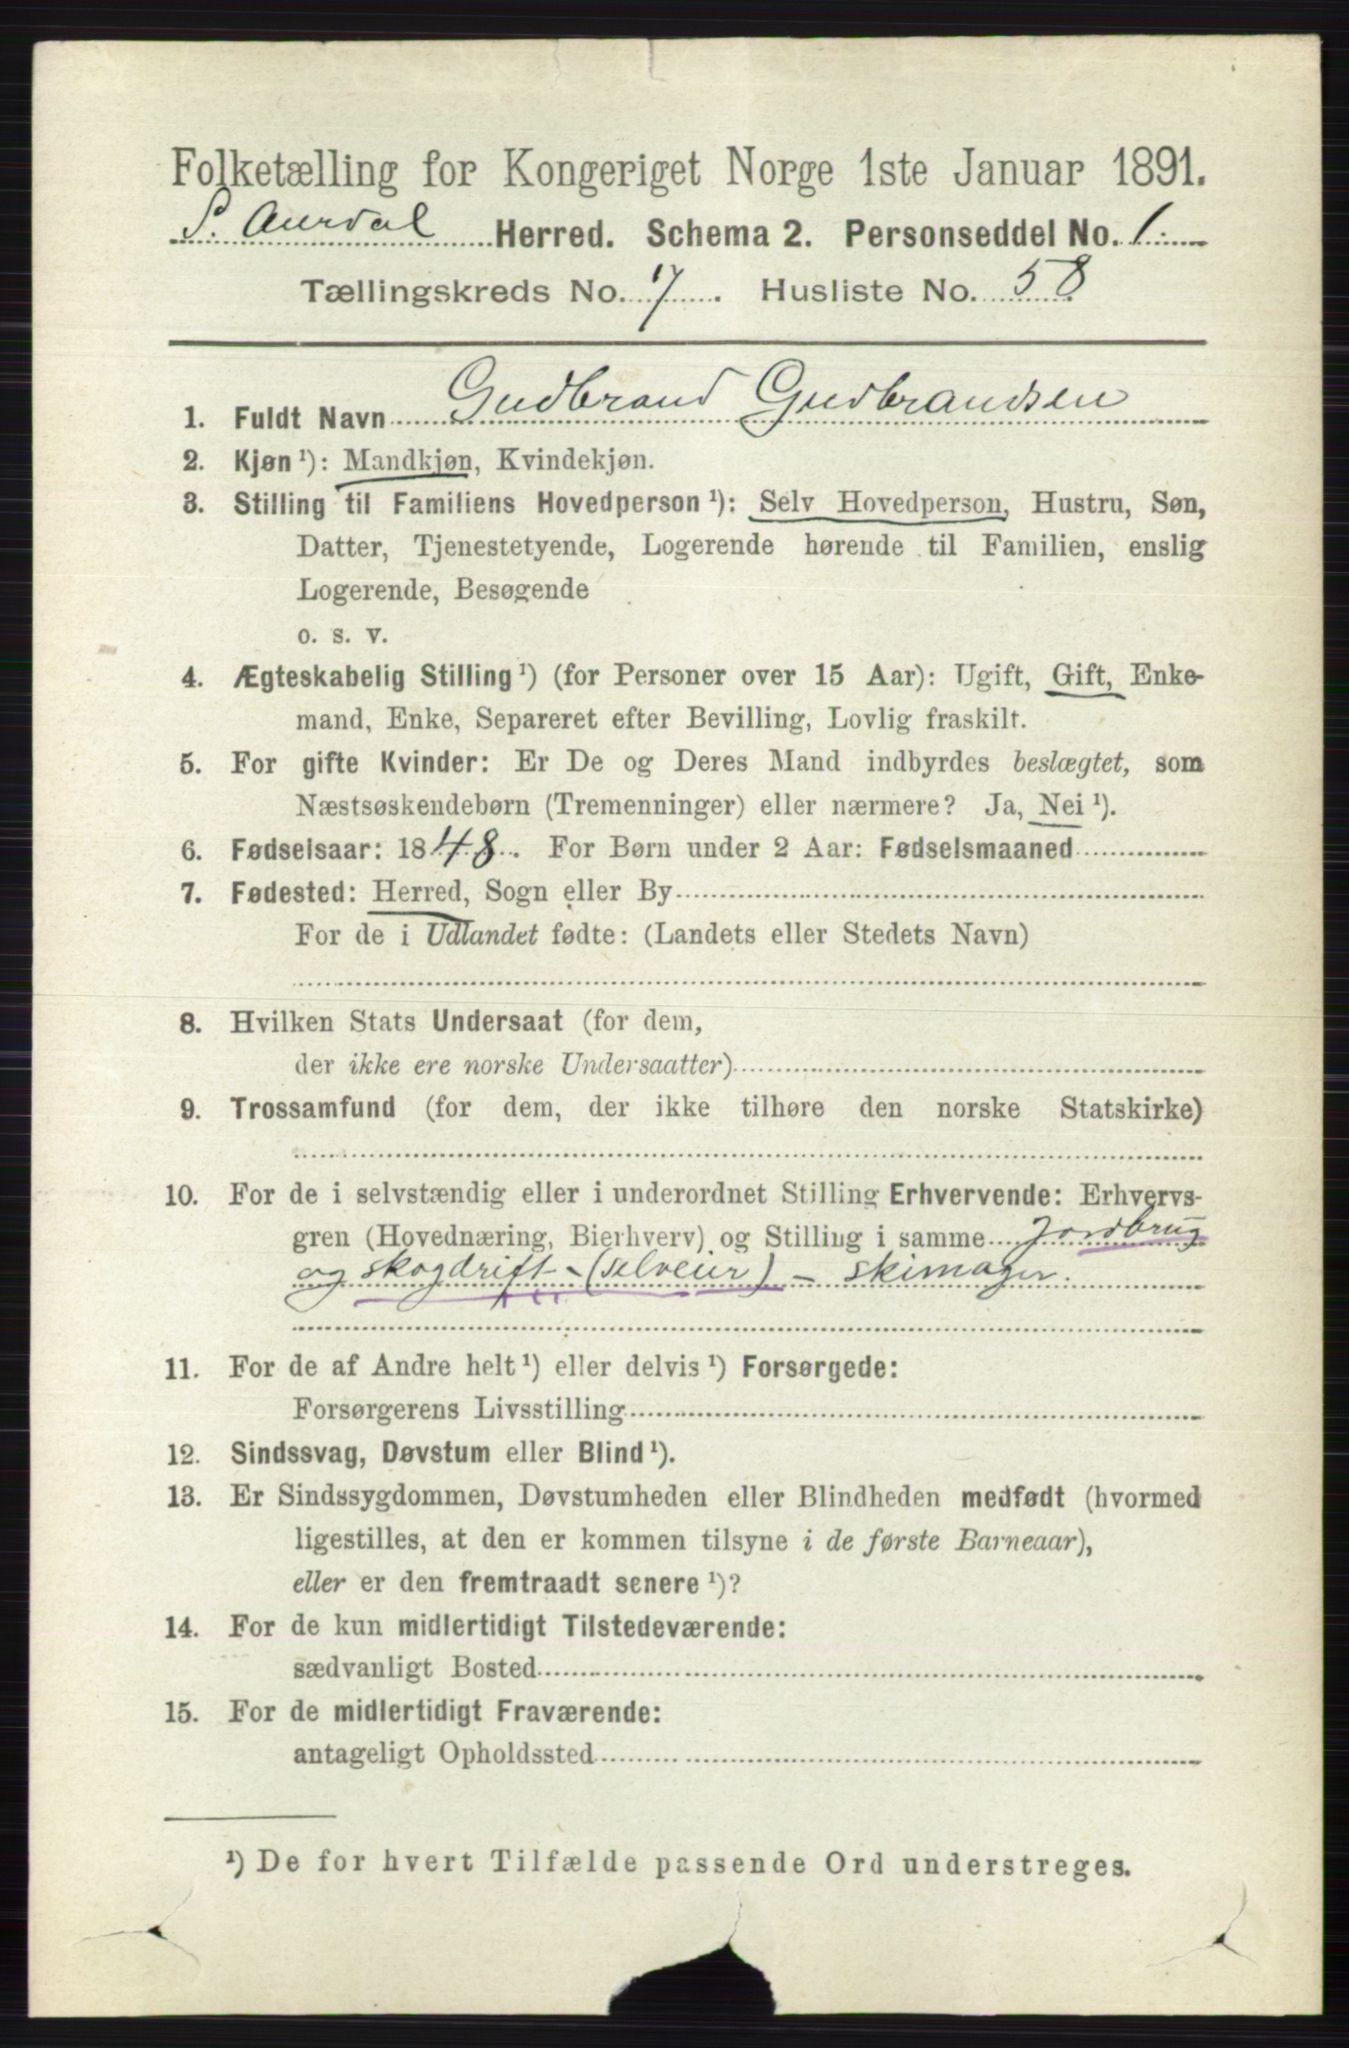 Folketælling for Kongeriget Norge 1ste Januar 1891.
S. Aurdal Herred. Schema 2. Personseddel No. 1.
Tællingskreds No. 7. Husliste No. 58
1. Fuldt Navn Gudbrand Gudbrandsen
2. Kjøn ¹): Mandkjøn, Kvindekjøn.
3. Stilling til Familiens Hovedperson ¹): Selv Hovedperson, Hustru, Søn,
Datter, Tjenestetyende, Logerende hørende til Familien, enslig
Logerende, Besøgende
o. s. v.
4. Ægteskabelig Stilling ¹) (for Personer over 15 Aar): Ugift, Gift, Enke-
mand, Enke, Separeret efter Bevilling, Lovlig fraskilt.
5. For gifte Kvinder: Er De og Deres Mand indbyrdes beslægtet, som
Næstsøskendebørn (Tremenninger) eller nærmere? Ja, Nei ¹).
6. Fødselsaar: 1848. For Børn under 2 Aar: Fødselsmaaned
7. Fødested: Herred, Sogn eller By
For de i Udlandet fødte: (Landets eller Stedets Navn)
8. Hvilken Stats Undersaat (for dem,
der ikke ere norske Undersaatter)
9. Trossamfund (for dem, der ikke tilhøre den norske Statskirke)
10. For de i selvstændig eller i underordnet Stilling Erhvervende: Erhvervs-
gren (Hovednæring, Bierhverv) og Stilling i samme Jordbrug
og skogdrift - (selveier) - skimager.
11. For de af Andre helt ¹) eller delvis ¹) Forsørgede:
Forsørgerens Livsstilling
12. Sindssvag, Døvstum eller Blind ¹).
13. Er Sindssygdommen, Døvstumheden eller Blindheden medfødt (hvormed
ligestilles, at den er kommen tilsyne i de første Barneaar),
eller er den fremtraadt senere ¹)?
14. For de kun midlertidigt Tilstedeværende:
sædvanligt Bosted
15. For de midlertidigt Fraværende:
antageligt Opholdssted
¹) De for hvert Tilfælde passende Ord understreges.